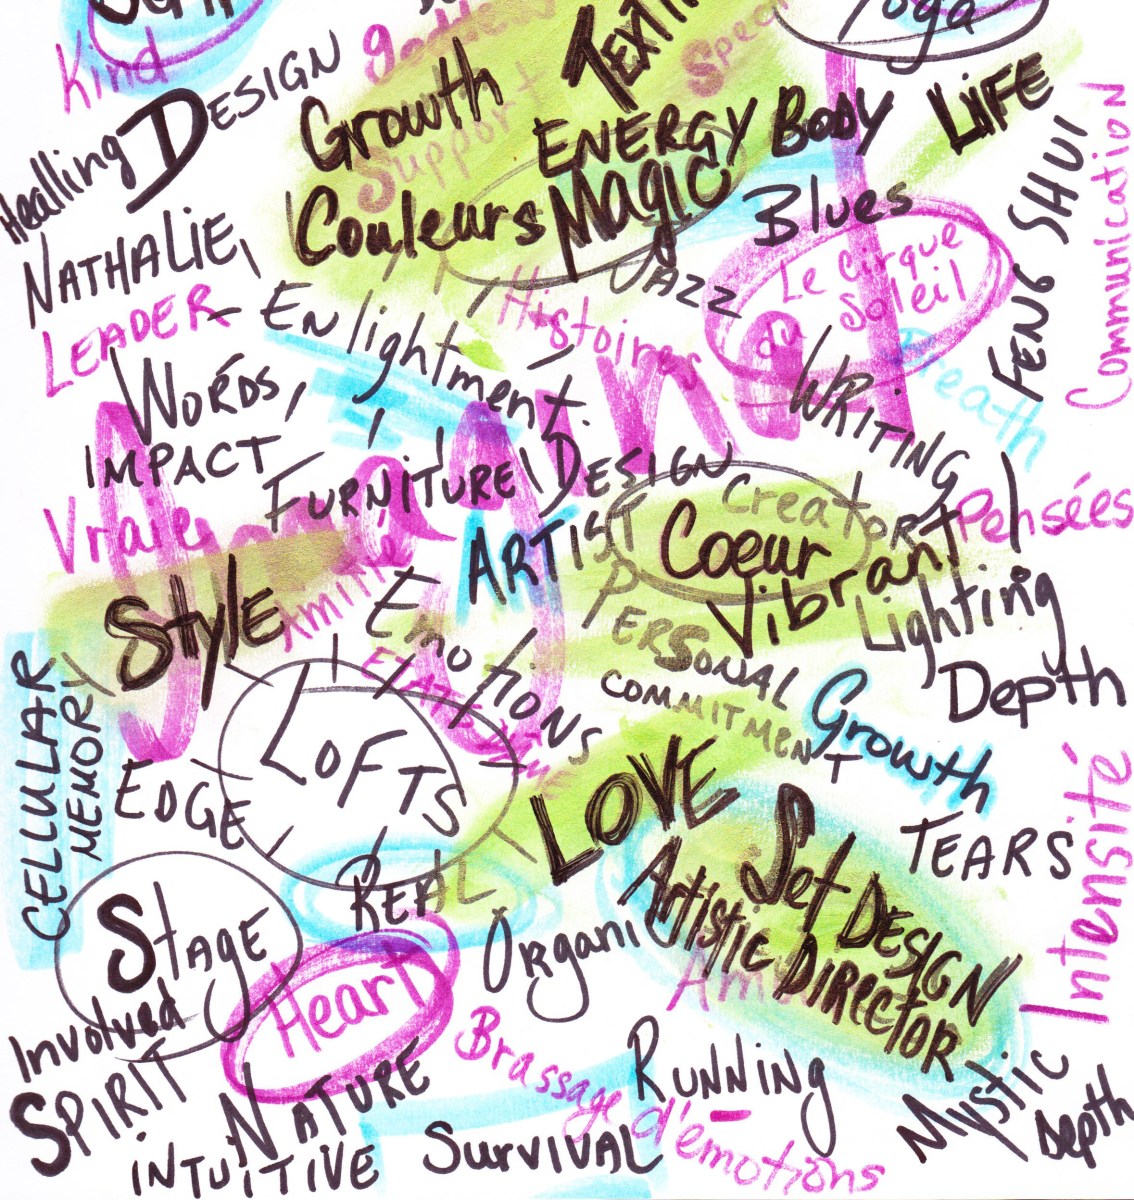 Yoga
Kind
DESIGN
Growth
Support
ENERGY BODY
LIFE
Healling
Couleurs
MAGIC
Blues
FENG SHUI
Communication
NATHALIE,
JAZZ
Le Cirque
du Soleil
LEADER
Enlightment.
Histoires
WORDS,
IMPACT
WRITING
Breath
FURNITURE DESIGN
Creator
Pensées
Vraie
ARTIST
Coeur
Vibrant
Style
Amitié
Emotions
PERSONAL
COMMITMENT
Lighting
Depth
CELLULAR
MEMORY
LOFTS
Growth
EDGE
LOVE
TEARS
Intensité
REAL
Set DESIGN
Artistic DIRECTOR
STAGE
Organic
Heart
Involved
SPIRIT
NATURE
Brassage d'émotions
RUNNING
Mystic
Depth
INTUITIVE
SURVIVAL